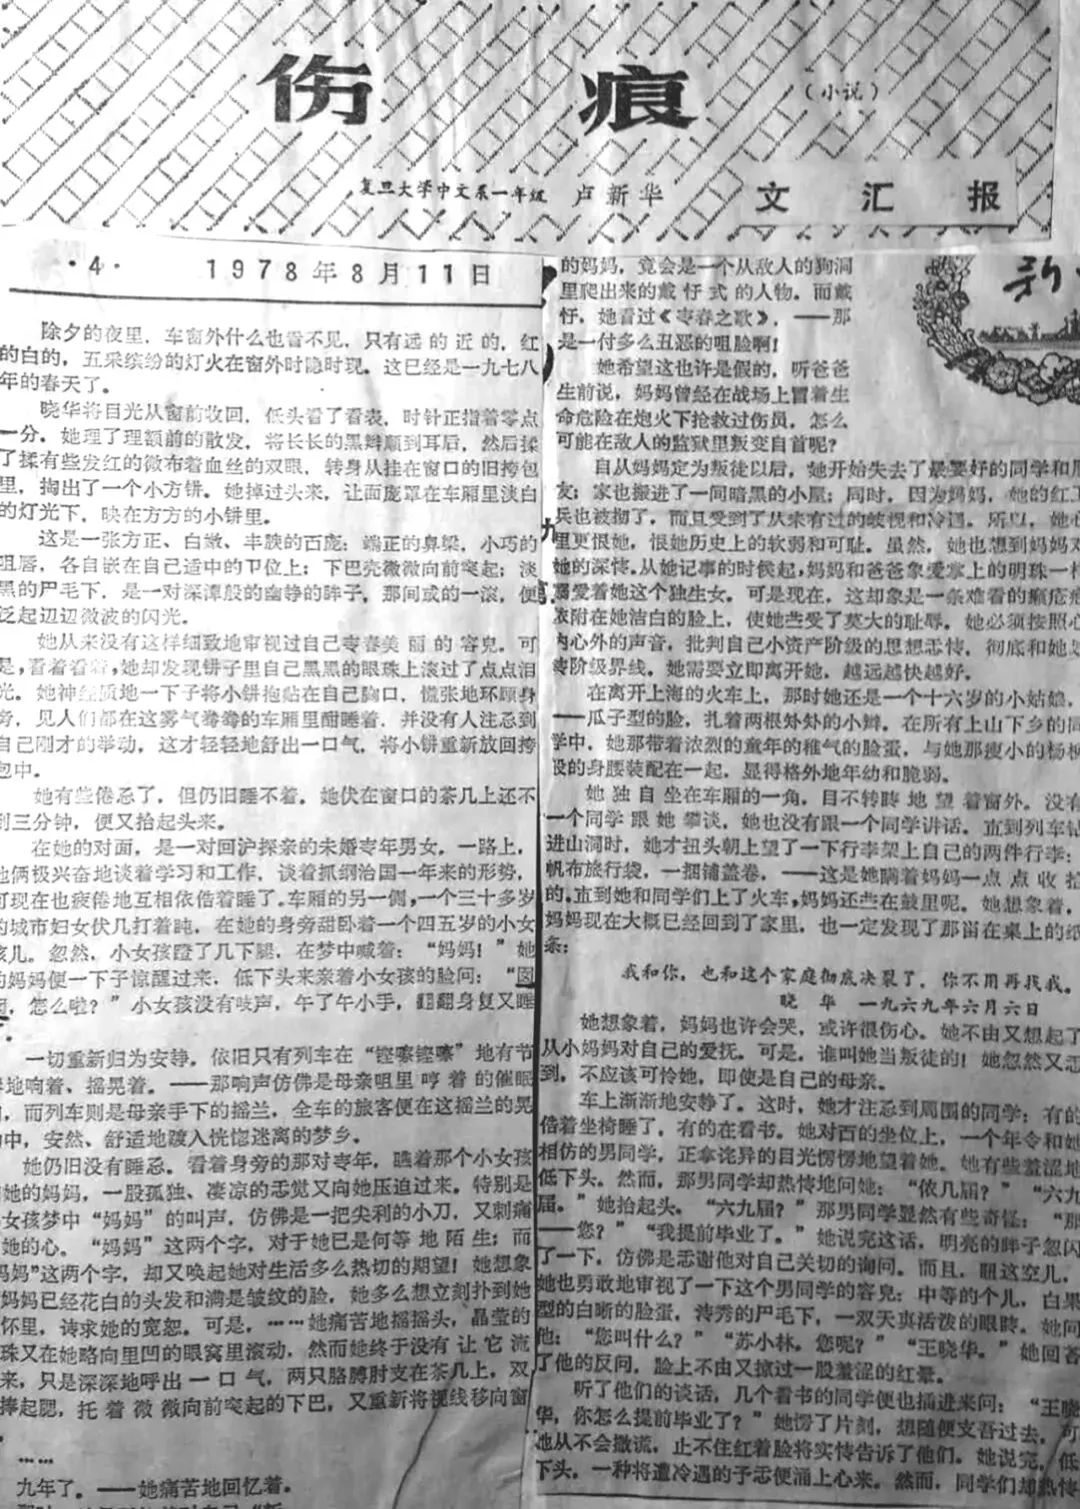 伤 痕 (小说)
复旦大学中文系一年级 卢新华 文汇报
·4· 1978年8月11日
除夕的夜里，车窗外什么也看不见，只有远的近的，红
的白的，五采缤纷的灯火在窗外时隐时现。这已经是一九七八
年的春天了。
晓华将目光从窗前收回，低头看了看表，时针正指着零点
一分。她理了理额前的散发，将长长的黑辫顺到耳后，然后揉
了揉有些发红的微布着血丝的双眼，转身从挂在窗口的旧挎包
里，掏出了一个小方镜。她掉过头来，让面庞罩在车厢里淡白
的灯光下，映在方方的小镜里。
这是一张方正、白嫩、丰腴的面庞：端正的鼻梁，小巧的
咀唇，各自嵌在自己适中的部位上；下巴壳微微向前突起；淡
黑的眉毛下，是一对深潭般的幽静的眸子，那间或的一滚，便
泛起边边微波的闪光。
她从来没有这样细致地审视过自己青春美丽的容貌。可
是，看着看着，她却发现镜子里自己黑黑的眼珠上滚过了点点泪
光。她神经质地一下子将小镜抱贴在自己胸口，慌张地环顾身
旁，见人们都在这雾气腾腾的车厢里酣睡着，并没有人注意到
自己刚才的举动，这才轻轻地舒出一口气，将小镜重新放回挎
包中。
她有些倦意了，但仍旧睡不着。她伏在窗口的茶几上还不
到三分钟，便又抬起头来。
在她的对面，是一对回沪探亲的未婚青年男女。一路上，
他俩极兴奋地谈着学习和工作，谈着抓纲治国一年来的形势，
可现在也疲倦地互相依偣着睡了。车厢的另一侧，一个三十多岁
的城市妇女伏几打着盹，在她的身旁甜卧着一个四五岁的小女
孩儿。忽然，小女孩蹬了几下腿，在梦中喊着：“妈妈！”她
的妈妈便一下子惊醒过来，低下头来亲着小女孩的脸问：“囡
囡，怎么啦？”小女孩没有吱声，午了午小手，翻翻身复又睡
一切重新归为安静。依旧只有列车在“铿嚓铿嚓”地有节
地响着、摇晃着。——那响声仿佛是母亲咀里哼着的催眠
，而列车则是母亲手下的摇兰，全车的旅客便在这摇兰的晃
中，安然、舒适地踱入恍惚迷离的梦乡。
她仍旧没有睡意。看着身旁的那对青年，瞧着那个小女孩
她的妈妈，一股孤独、凄凉的感觉又向她压迫过来。特别是
女孩梦中“妈妈”的叫声，仿佛是一把尖利的小刀，又刺痛
她的心。“妈妈”这两个字，对于她已是何等地陌生；而
妈妈”这两个字，却又唤起她对生活多么热切的期望！她想象
妈妈已经花白的头发和满是皱纹的脸，她多么想立刻扑到她
怀里，请求她的宽恕。可是，……她痛苦地摇摇头，晶莹的
珠又在她略向里凹的眼窝里滚动，然而她终于没有让它流
来，只是深深地呼出一口气，两只胳膊肘支在茶几上，双
捧起腮，托着微微向前突起的下巴，又重新将视线移向窗
……
九年了。——她痛苦地回忆着。
的妈妈，竟会是一个从敌人的狗洞
里爬出来的戴忬式的人物。而戴
忬，她看过《青春之歌》，——那
是一付多么丑恶的咀脸啊！
她希望这也许是假的，听爸爸
生前说，妈妈曾经在战场上冒着生
命危险在炮火下抢救过伤员，怎么
可能在敌人的监狱里叛变自首呢？
自从妈妈定为叛徒以后，她开始失去了最要好的同学和朋
友；家也搬进了一间暗黑的小屋；同时，因为妈妈，她的红卫
兵也被彻了，而且受到了从来有过的歧视和冷遇。所以，她心
里更恨她，恨她历史上的软弱和可耻。虽然，她也想到妈妈对
她的深情。从她记事的时候起，妈妈和爸爸象爱掌上的明珠一样
溺爱着她这个独生女。可是现在，这却象是一条难看的癞疮疤
依附在她洁白的脸上，使她蒙受了莫大的耻辱。她必须按照心
内心外的声音，批判自己小资产阶级的思想感情，彻底和她划
清阶级界线。她需要立即离开她，越远越快越好。
在离开上海的火车上，那时她还是一个十六岁的小姑娘，
——瓜子型的脸，扎着两根外外的小辫。在所有上山下乡的同
学中，她那带着浓烈的童年的稚气的脸蛋，与她那瘦小的杨柳
般的身腰装配在一起，显得格外地年幼和脆弱。
她独自坐在车厢的一角，目不转睛地望着窗外。没有
一个同学跟她攀谈，她也没有跟一个同学讲话。直到列车钻
进山洞时，她才扭头朝上望了一下行李架上自己的两件行李：
帆布旅行袋，一捆铺盖卷，——这是她瞒着妈妈一点点收拾
的，直到她和同学们上了火车，妈妈还蒙在鼓里呢。她想象着，
妈妈现在大概已经回到了家里，也一定发现了那留在桌上的纸
条：
我和你，也和这个家庭彻底决裂了，你不用再找我。
晓 华 一九六九年六月六日
她想象着，妈妈也许会哭，或许很伤心。她不由又想起了
从小妈妈对自己的爱抚。可是，谁叫她当叛徒的！她忽然又感
到，不应该可怜她，即使是自己的母亲。
车上渐渐地安静了。这时，她才注意到周围的同学：有的
偣着坐椅睡了，有的在看书。她对面的坐位上，一个年令和她
相仿的男同学，正拿诧异的目光愣愣地望着她。她有些羞涩地
低下头。然而，那男同学却热情地问她：“侬几届？”“六九
届。”她抬起头。“六九届？”那男同学显然有些奇怪：“那
——您？”“我提前毕业了。”她说完这话，明亮的眸子忽闪
了一下，仿佛是感谢他对自己关切的询问。而且，趄这空儿，
她也勇敢地审视了一下这个男同学的容貌：中等的个儿，白果
型的白晰的脸蛋，清秀的眉毛下，一双天真活泼的眼睛。她问
他：“您叫什么？”“苏小林。您呢？”“王晓华。”她回答
了他的反问，脸上不由又掠过一股羞涩的红晕。
听了他们的谈话，几个看书的同学便也插进来问：“王晓
华，你怎么提前毕业了？”她愣了片刻，想随便支吾过去，可
她从不会撒谎，止不住红着脸将实情告诉了他们。她说完，低
下头，一种将遭冷遇的予感便涌上心来。然而，同学们却热情